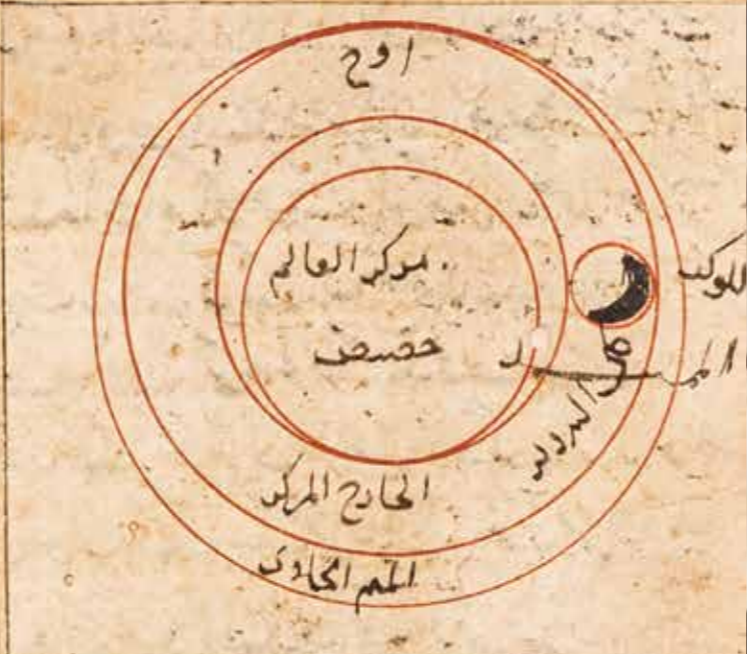 اوج
مركز العالم
حضيض
الكوكب
التدوير
الخارج المركز
المتمم الحاوى